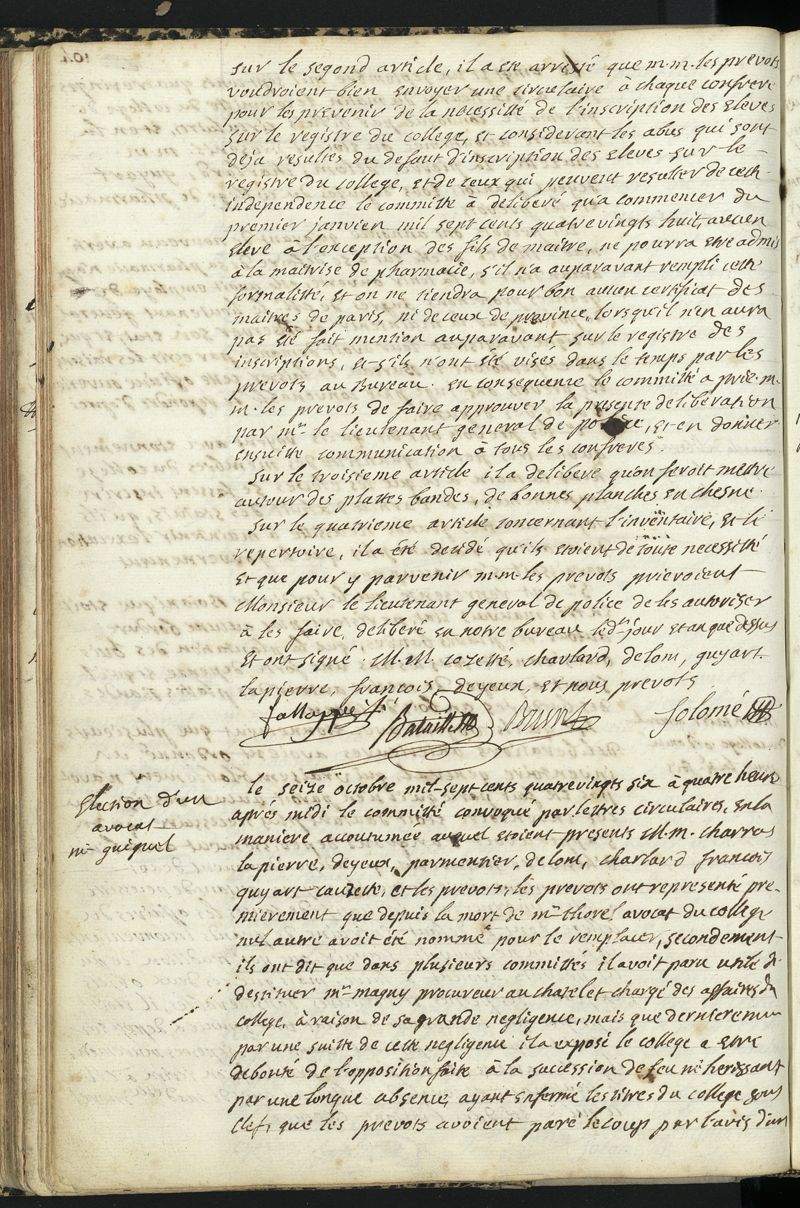 sur le segond article, il a esté arresté que m.m. les prevots
voudroient bien envoyer une circulaire à chaque confrere
pour les prevenir de la necessitté de l'inscription des eleves
sur le registre du college, et considerant les abus qui sont
deja resultés du defaut d'inscription des eleves sur le
registre du college, et de ceux qui peuvent resulter de cette
independence le committé à deliberé qu'a commencer du
premier janvier mil sept cents quatrevingts huit, aucun
elevé à l'exception des fils de maitre, ne pourra etre admis
à la maitrise de pharmacie, s'il n'a auparavant rempli cette
formalitté, et on ne tiendra pour bon aucun certificat des
maitres de paris, ni de ceux de province, lorsqu'il n'en aura
pas été fait mention auparavant sur le registre des
inscriptions, et s'ils n'ont été visés dans le temps par les
prevots au Bureau. en consequence le committé a prié m.
m. les prevots de faire approuver la presente deliberation
par mr. le lieutenant general de police, et en donner
ensuitte communication à tous les confreres.
Sur le troisieme article il a deliberé qu'on feroit mettre
autour des plattes bandes, de bonnes planches en chesne.
Sur le quatrieme article concernant l'inventaire, et le
repertoire, il a été decidé qu'ils etoient de toute necessitté
et que pour y parvenir m.m. les prevots prieroient
Monsieur le lieutenant general de police de les autoriser
à les faire, deliberé en notre bureau led. jour et an que dessus
et ont signé. M.M cozette, charlard, delom, guyart.
lapierre, françois, deyeux, et nous prevots
Bataille Brun Solomé
Election d'un
avocat
mr guiquel
le seize octobre mil-sept cents quatrevingts six à quatre heures
aprés midi le committé convoqué par lettres circulaires, en la
maniere accoutumée auquel etoient presents M.m. charras
lapierre, deyeux, parmentier, delom, charlard françois
guyart cauzette, et les prevots, les prevots ont representé pre-
mierement que depuis la mort de mr. thorel avocat du college
nul autre avoit été nommé pour le remplacer, secondement
ils ont dit que dans plusieurs committés il avoit paru utile de
destituer mr magny procureur au chatelet chargé des affaires du
college, à raison de sa grande negligence, mais que dernierement
par une suitte de cette negligence il a exposé le college a etre
debouté de l'opposition faite à la succession de feu mr herissant
par une longue absence, ayant enfermé les titres du college sous
clef, que les prevots avoient paré le coup par l'avis d'un